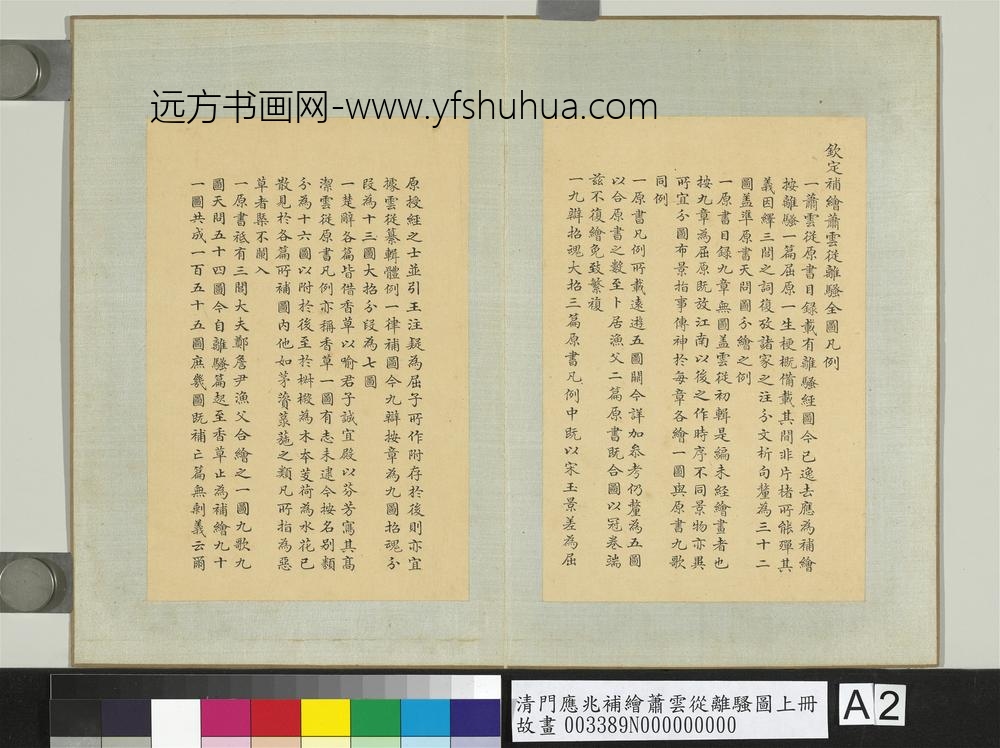 远方书画网-www.yfshuhua.com
欽定補繪蕭雲從離騷全圖凡例
一蕭雲從原書目録載有離騷經圖今已逸去應為補繪
按離騷一篇屈原一生梗概備載其間非片楮所能殫其
義因繹三閭之詞復攷諸家之注分文析句釐為三十二
圖蓋準原書天問圖分繪之例
一原書目録九章無圖蓋雲從初輯是編未經繪畫者也
按九章為屈原既放江南以後之作時序不同景物亦異
所宜分圖布景指事傳神於每章各繪一圖與原書九歌
同例
一原書凡例所載遠遊五圖闕今詳加叅考仍釐為五圖
以合原書之數至卜居漁父二篇原書既合圖以冠卷端
兹不復繪免致繁複
一九辯招魂大招三篇原書凡例中既以宋玉景差為屈
原授經之士並引王注疑為屈子所作附存於後則亦宜
據雲從纂輯體例一律補圖今九辯按章為九圖招魂分
段為十三圖大招分段為七圖
一楚辭各篇皆借香草以喻君子誠宜殿以芬芳寫其高
潔雲從原書凡例亦稱香草一圖有志未逮今按名別類
分為十六圖以附於後至於樧椴為木本芰荷為水花已
散見於各篇所補圖內他如茅薋菉葹之類凡所指為惡
草者槩不闌入
一原書祗有三閭大夫鄭詹尹漁父合繪之一圖九歌九
圖天問五十四圖今自離騷篇起至香草止為補繪九十
一圖共成一百五十五圖庶幾圖既補亡篇無剩義云爾
清門應兆補繪蕭雲從離騷圖上冊
故畫 003389N000000000
A 2